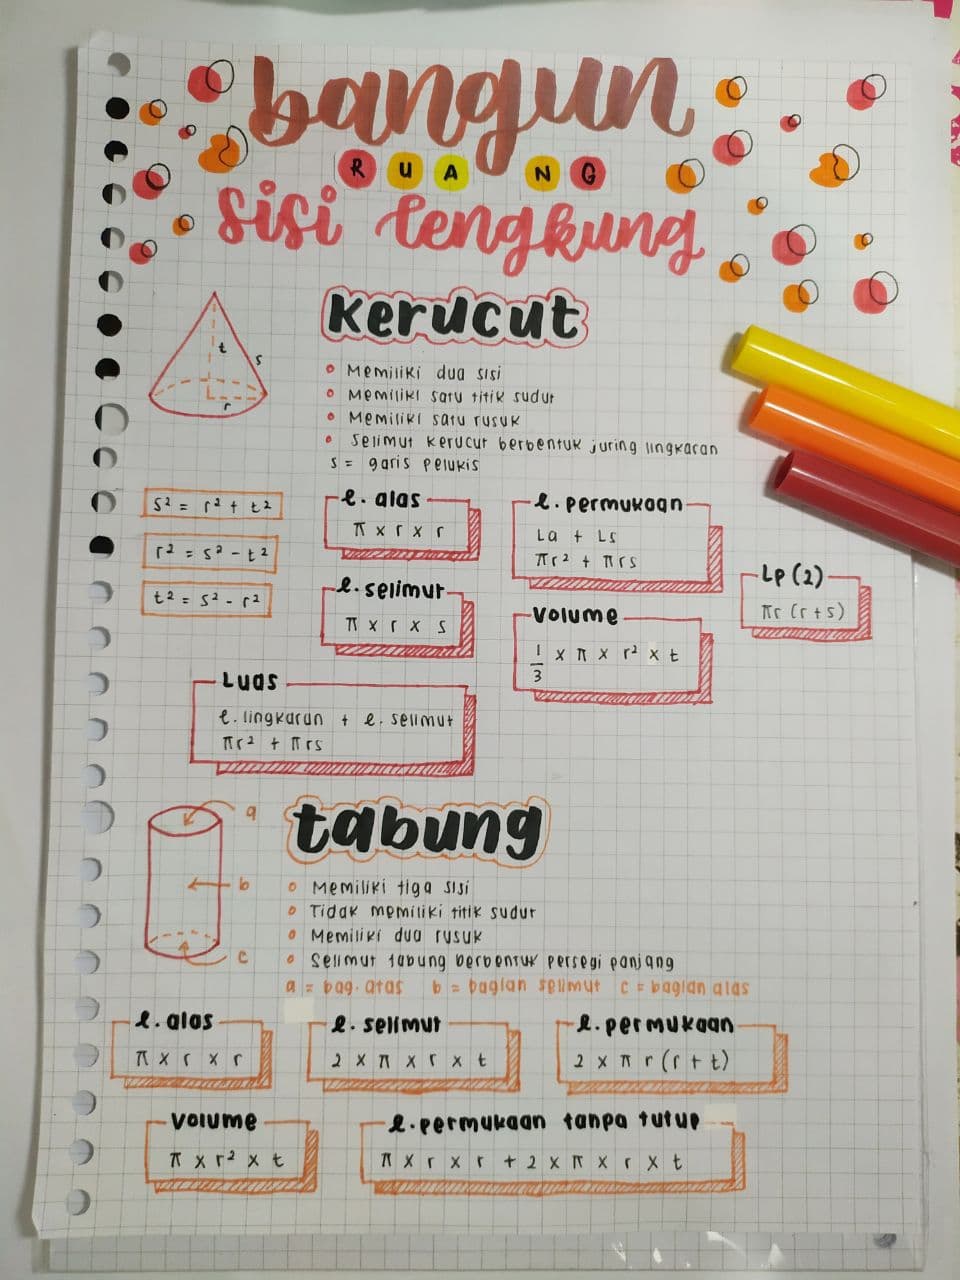 bangun
RUANG
sisi lengkung
kerucut
t
s
r
Memiliki dua sisi
Memiliki satu titik sudut
Memiliki satu rusuk
Selimut kerucut berbentuk juring lingkaran
s = garis pelukis
s² = r² + t²
r² = s² - t²
t² = s² - r²
l. alas
π x r x r
l. permukaan
La + Ls
πr² + πrs
Lp (2)
πr (r + s)
l. selimut
π x r x s
volume
1/3 x π x r² x t
Luas
l. lingkaran + l. selimut
πr² + πrs
tabung
a
b
c
Memiliki tiga sisi
Tidak memiliki titik sudut
Memiliki dua rusuk
Selimut tabung berbentuk persegi panjang
a = bag. atas b = bagian selimut c = bagian alas
l. alas
π x r x r
l. selimut
2 x π x r x t
l. permukaan
2 x π r (r + t)
volume
π x r² x t
l. permukaan tanpa tutup
π x r x r + 2 x π x r x t